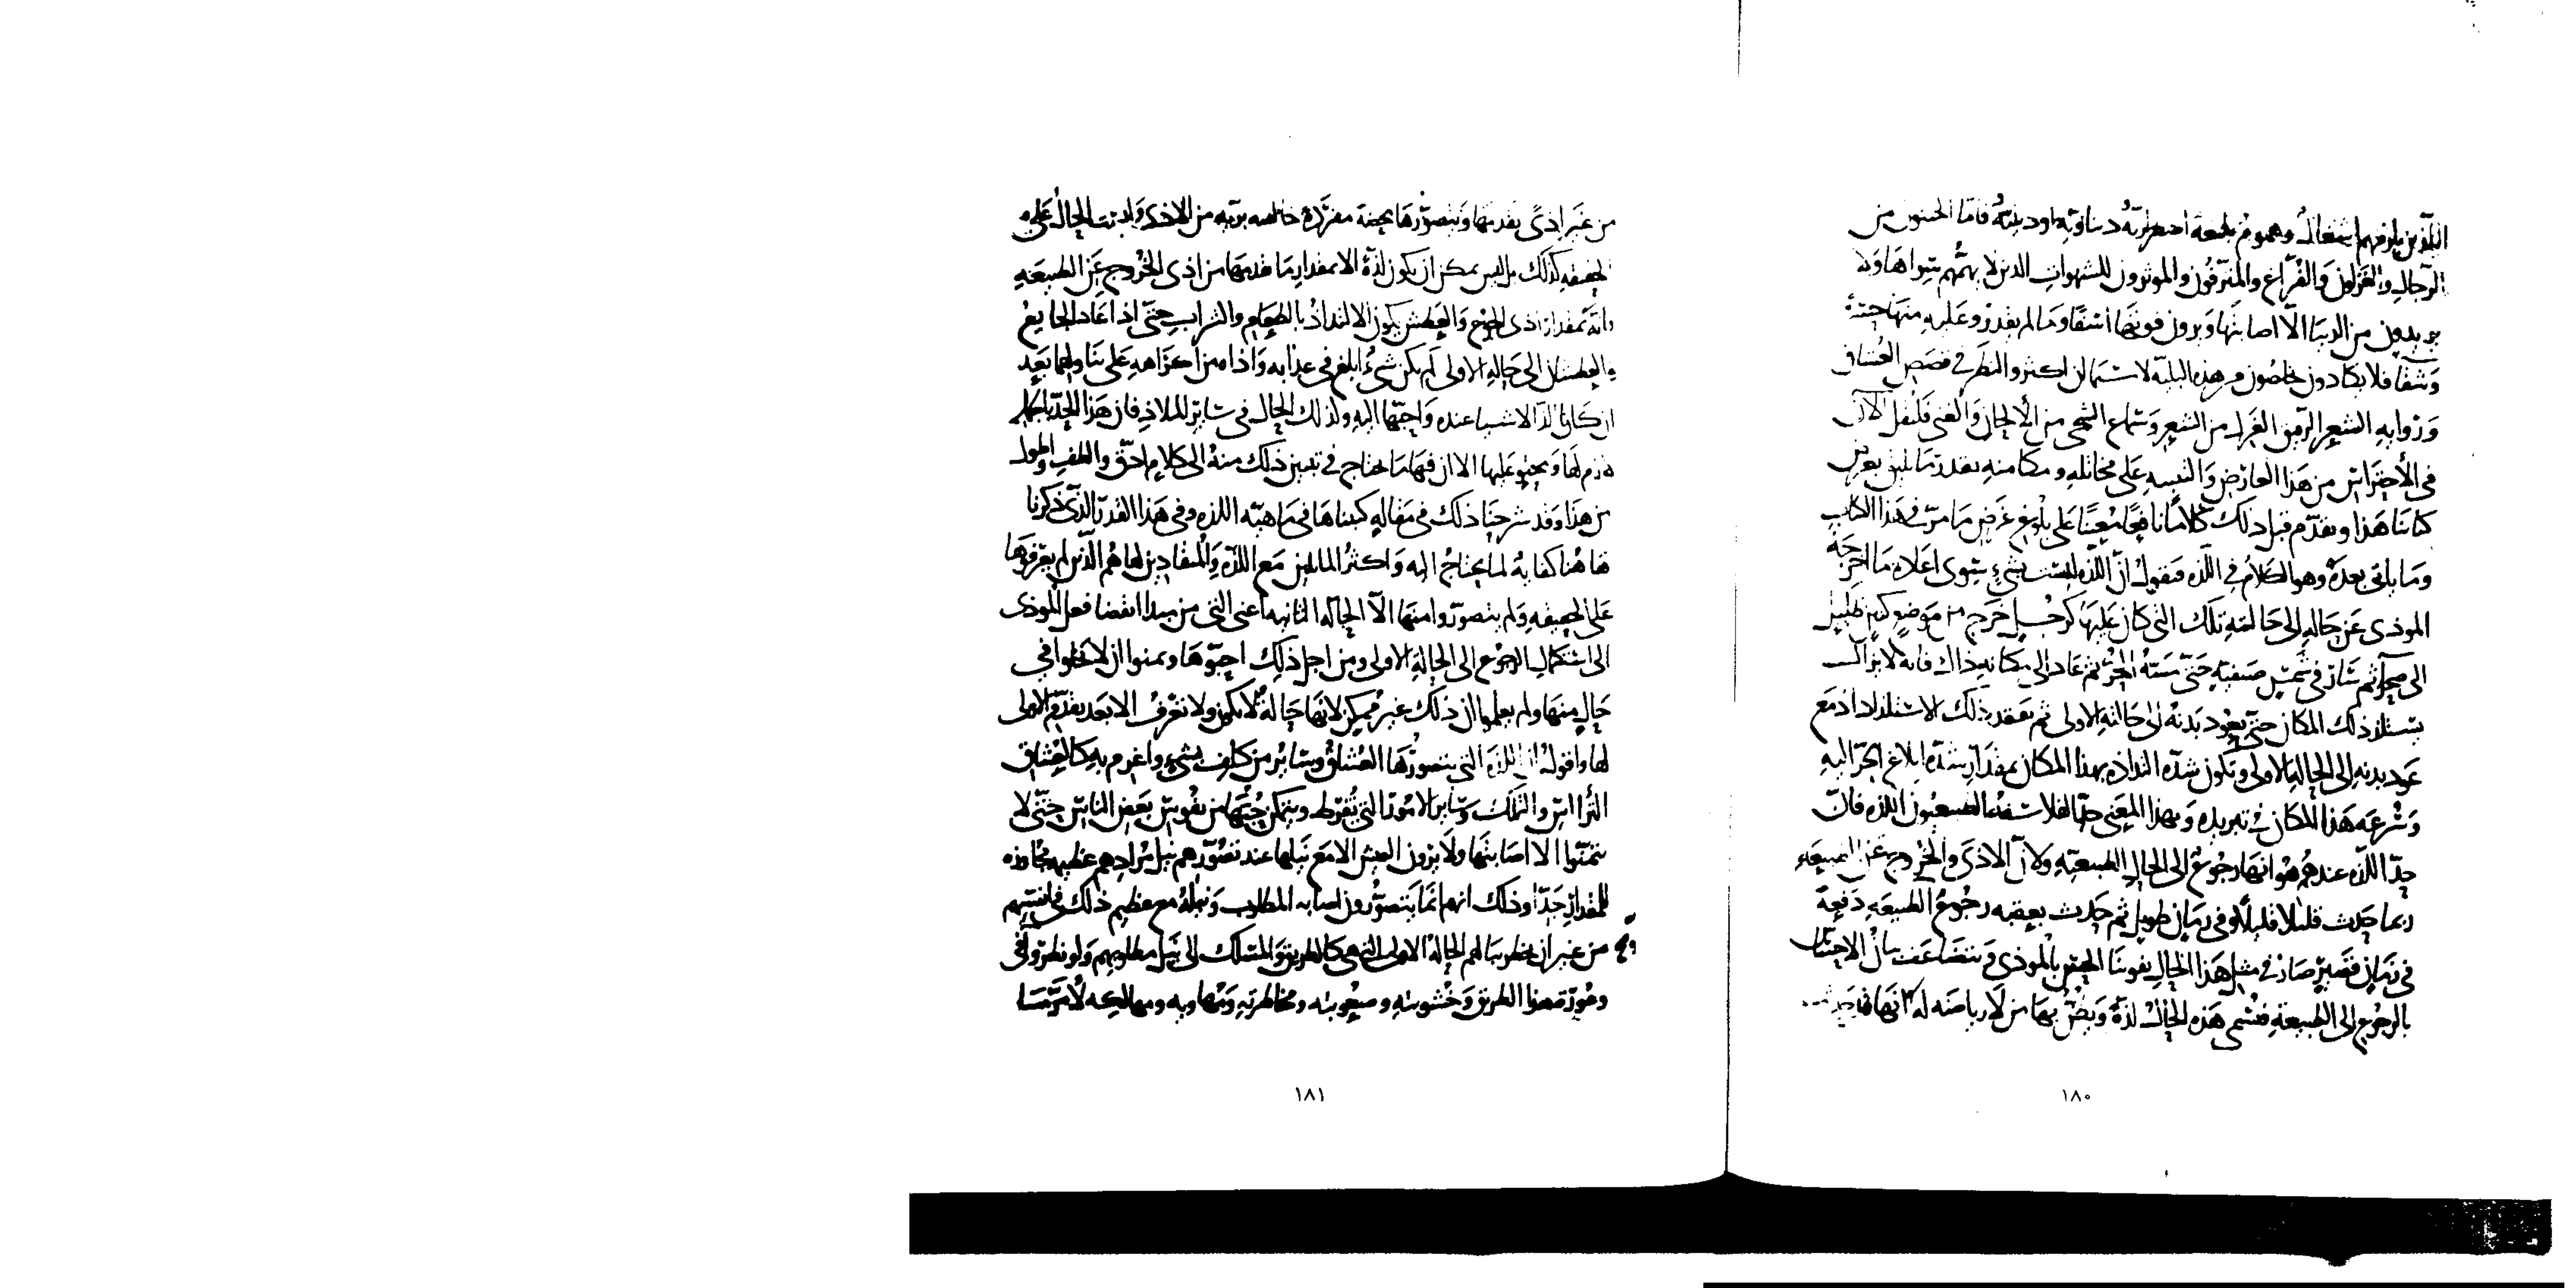 الذين يلزمهم اشغال وهموم بليغة اضطرارية دنياوية او دينية فاما الخنثون من
الرجال والغزلون والفراغ والمترفون والموثرون للشهوات الذين لا يهمهم سواها ولا
يريدون من الدنيا الا اصابتها ويرون فوتها اسفا وما لم يقدروا عليه منها حسرة
وشقا فلا يكادون يخلصون من هذه البلية لا سيما ان اكثروا النظر في قصص العشاق
ورواية الشعر الرقيق الغزل من الشعر وسماع الشجي من الالحان والغنى فلنقل الان
في الاحتراس من هذا العارض والتنبيه على مخاتله ومكامنه بقدر ما يليق بغرض
كتابنا هذا ونقدم قبل ذلك كلاما نافعا معينا على بلوغ غرض ما مر في هذا الكتاب
وما ياتي بعده وهو الكلام في اللذه فنقول ان اللذه ليست بشي سوى اعادة ما اخرجه
الموذي عن حاله الى حالته تلك التي كان عليها كرجل خرج من موضع كنين ظليل
الى صحرا ثم سار في شمس صيفية حتى مسه الحر ثم عاد الى مكانه ذاك فانه لا يزال
يستلذ ذلك المكان حتى يعود بدنه الى حالته الاولى ثم يفقد ذلك الاستلذاذ مع
عود بدنه الى الحالة الاولى وتكون شدة التذاذه بهذا المكان بمقدار شدة ابلاغ الحر اليه
وسرعه هذا المكان في تبريده وبهذا المعنى حد الفلاسفة الطبيعيون اللذه فان
حد اللذه عندهم هو انها رجوع الى الحال الطبيعية ولان الاذى والخروج عن الطبيعة
ربما حدث قليلا قليلا وفي زمان طويل ثم حدث بعقبه رجوع الطبيعة دفعة
في زمان قصير صار في مثل هذا الحال يفوتنا الحس بالموذي ويتضاعف بيان الاحساس
بالرجوع الى الطبيعة فتسمى هذه الحال لذة ويظن بها من لا رياضه له انها حدثت
من غير اذى يقدمها ويتصورها محضة مفردة خالصه بريه من الاذى وليست الحال على
الحقيقة كذلك بل ليس يمكن ان يكون لذة الا بمقدار ما تقدمها من اذى الخروج عن الطبيعة
فانه بمقدار اذى الجوع والعطش يكون الالتذاذ بالطعام والشراب حتى اذا عاد الجايع
والعطشان الى حاله الاولى لم يكن شي ابلغ في عذابه واذا من اكراهه على تناولهما بعد
ان كانا الذ الاشيا عنده واحبها اليه وكذلك الحال في ساير الملاذ فان هذا الحد بالجملة
لازم لها ومحتو عليها الا ان فيها ما يحتاج في تبيين ذلك منه الى كلام ادق والطف واطول
من هذا وقد شرحنا ذلك في مقاله كتبناها في ماهية اللذه وفي هذا القدر الذي ذكرنا
هاهنا كفاية لما يحتاج اليه واكثر المايلين مع اللذة والمنقادين لها هم الذين لم يعرفوها
على الحقيقه ولم يتصوروا منها الا الحاله الثانيه اعني التي من مبدا انقضا فعل الموذي
الى استكمال الرجوع الى الحالة الاولى ومن اجل ذلك احبوها وتمنوا ان لا يخلوا في
حال منها ولم يعلموا ان ذلك غير ممكن لانها حالة لا تكون ولا تعرف الا بعد تقدم الاولى
لها واقول ان اللذه التي يتصورها العشاق وساير من كلف بشي واغرم به كالعشاق
للترااس والتملك وساير الامور التي يفرط ويتمكن حبها من نفوس بعض الناس حتى لا
يتمنوا الا اصابتها ولا يرون العيش الا مع نيلها عند تصورهم نيل مرادهم عظيمة مجاوزه
للمقدار جدا وذلك انهم انما يتصورون اصابه المطلوب ونيله مع عظيم ذلك في انفسهم
من غير ان يخطر ببالهم الحالة الاولى التي هي كالطريق والمسلك الى نيل مطلوبهم ولو نظروا في
وعورة هذا الطريق وخشونته وصعوبته ومخاطرته ومهاويه ومهالكه لامر
١٨١
١٨٠